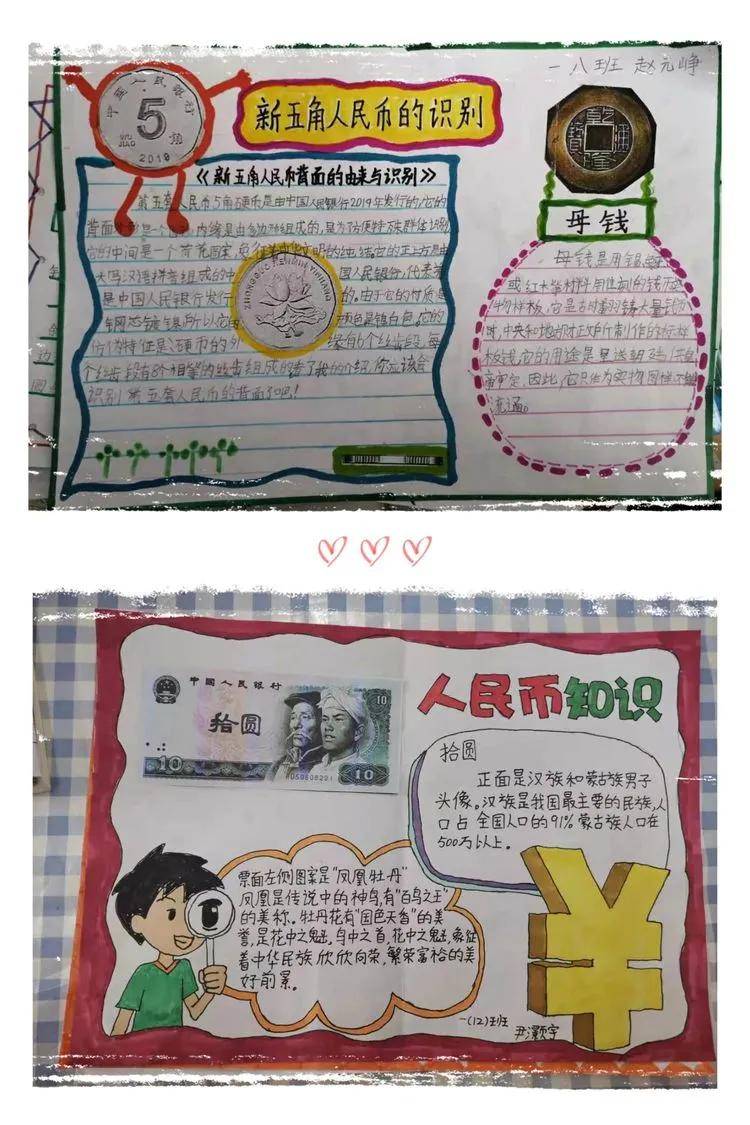 一八班 赵元峥
中国人民银行
5
角
WU JIAO
2019
新五角人民币的识别
《新五角人民币背面的由来与识别》
第五套人民币5角硬币是由中国人民银行2019年发行的,它的
背面
是一个
内缘是由多边形组成的,是为方便特殊群体识别
它的中间是一个荷花图案,象征着
文明的纯洁。它的正上方是由
大写汉语拼音组成的中
国人民银行,代表着
是中国人民银行发行
的。由于它的材质是
钢芯镀镍,所以它
颜色是镍白色。它的
防伪特征是:硬币的外
缘有6个丝齿段,每
个丝齿段有8个相等的丝齿组成的看了我的介绍,你应该会
识别第五套人民币的背面了吧!
ZHONGGUO RENMIN YINHANG
乾隆通寶
母钱
母钱是用锡
或红木等材料用
刻的钱币
物样板,它是古时翻铸大量钱币
时,中央和地方对正炉所制作的标样
板钱,它的用途是呈送
审定。因此,它只作为实物图样不能
流通。
中国人民银行
拾圆
10
10
10
人民币知识
拾圆
正面是汉族和蒙古族男子
头像。汉族是我国最主要的民族,人
口占全国人口的91%蒙古族人口在
500万以上。
票面左侧图案是"凤凰牡丹"
凤凰是传说中的神鸟,有"百鸟之王"
的美称。牡丹花有"国色天香"的美
誉,是花中之魁,鸟中之首,花中之魁,象征
着中华民族欣欣向荣,繁荣富裕的美
好前景。
¥
一(12)班
尹灏宇